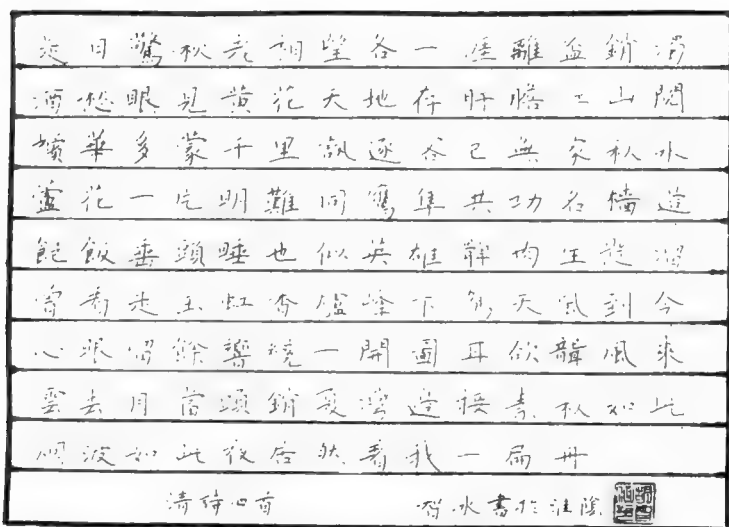 是日驚秋老相望各一涯離盃銷濁
酒愁眼見黃花天地存肝膽江山閱
鬢華多蒙千里訊逐客已無家秋水
蘆花一片明難同鷹隼共功名檣邊
飽飯垂頭睡也似英雄髀肉生從
曾看走玉虹香爐峰下駕天風到今
心眼留餘響繞一開圖耳欲聾風來
雲去月當頭銷夏灣邊接素秋如此
烟波如此夜居然著我一扁舟
清詩四首 智水書於淮陰